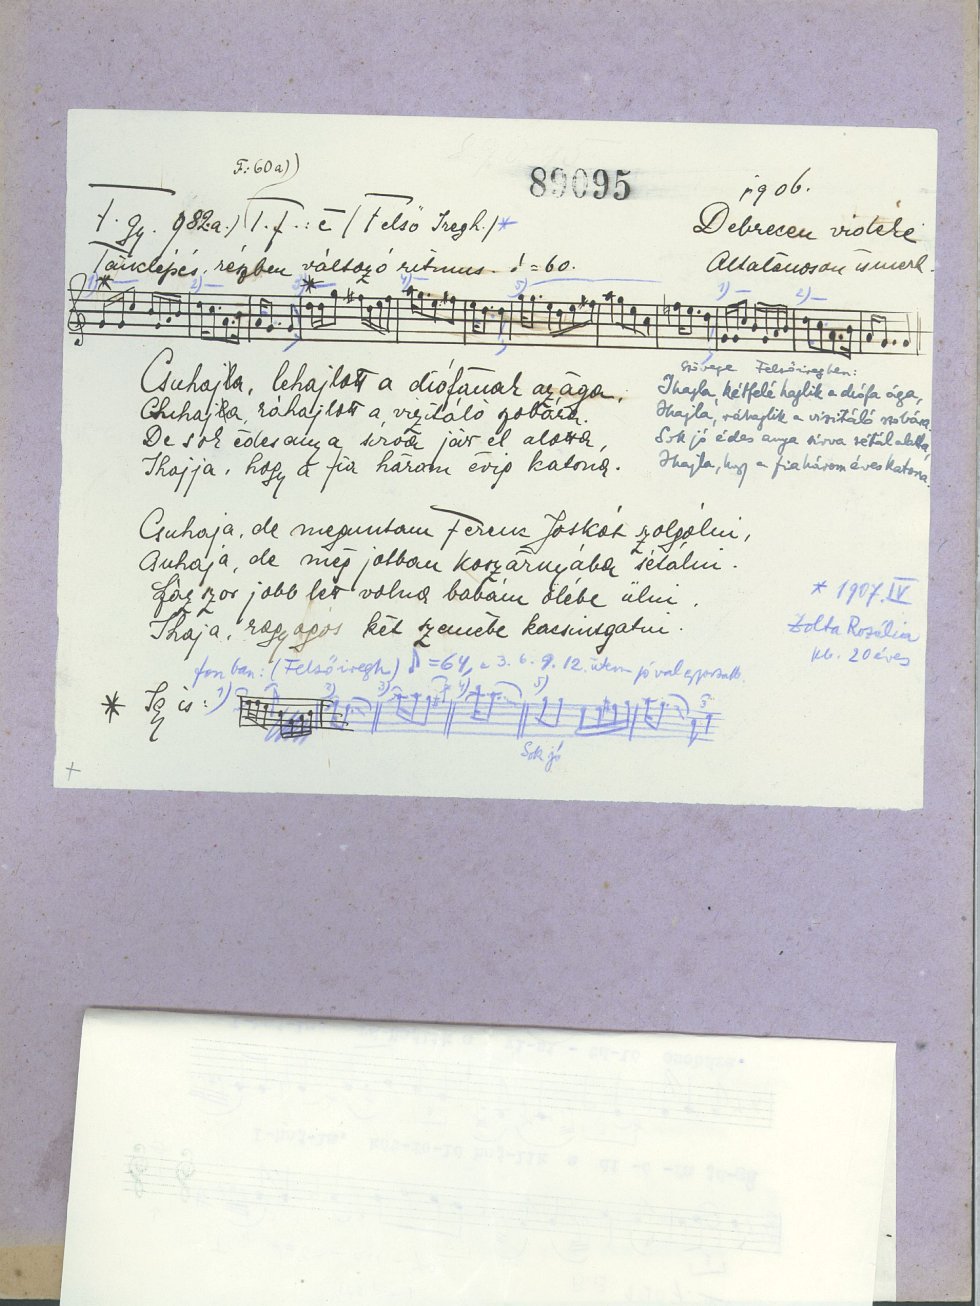 F: 60a))
89095
1906.
T. gy. 982a.) T. f.: è (Felső Iregh.)*
Debrecen vidéke
Tánclépés, részben változó ritmus. ♩ = 60.
Általánosan ismert.
* 1) 2) 3) * 4) 5) 1) 2)
Csuhajla, lehajlott a diófának az ága,
Csuhajla, ráhajlott a vizitáló szobára.
De sok édesanya sírva jár el alatta,
Ihajja, hogy a fia három évig katona.
Szövege Felsőiregben:
Ihajla, kétfelé hajlik a diófa ága,
Ihajla, ráhajlik a vizitáló szobára
Sok jó édes anya sírva sétál alatta,
Ihajla, hogy a fia három éves katona.
Csuhaja, de meguntam Ferenc Jóskát szolgálni,
Csuhaja, de még jobban koszárnyába sétálni.
Százszor jobb lett volna babám ölébe ülni,
Ihaja, ragyogós két szemébe kacsintgatni.
* 1907. IV
Zolta Rozália
kb. 20 éves
fonban: (Felsőiregh) ♪ = 64, a 3. 6. 9. 12. ütem jóval gyorsabb.
* Így is: 1) 2) 3) 4) 5)
Sok jó
+